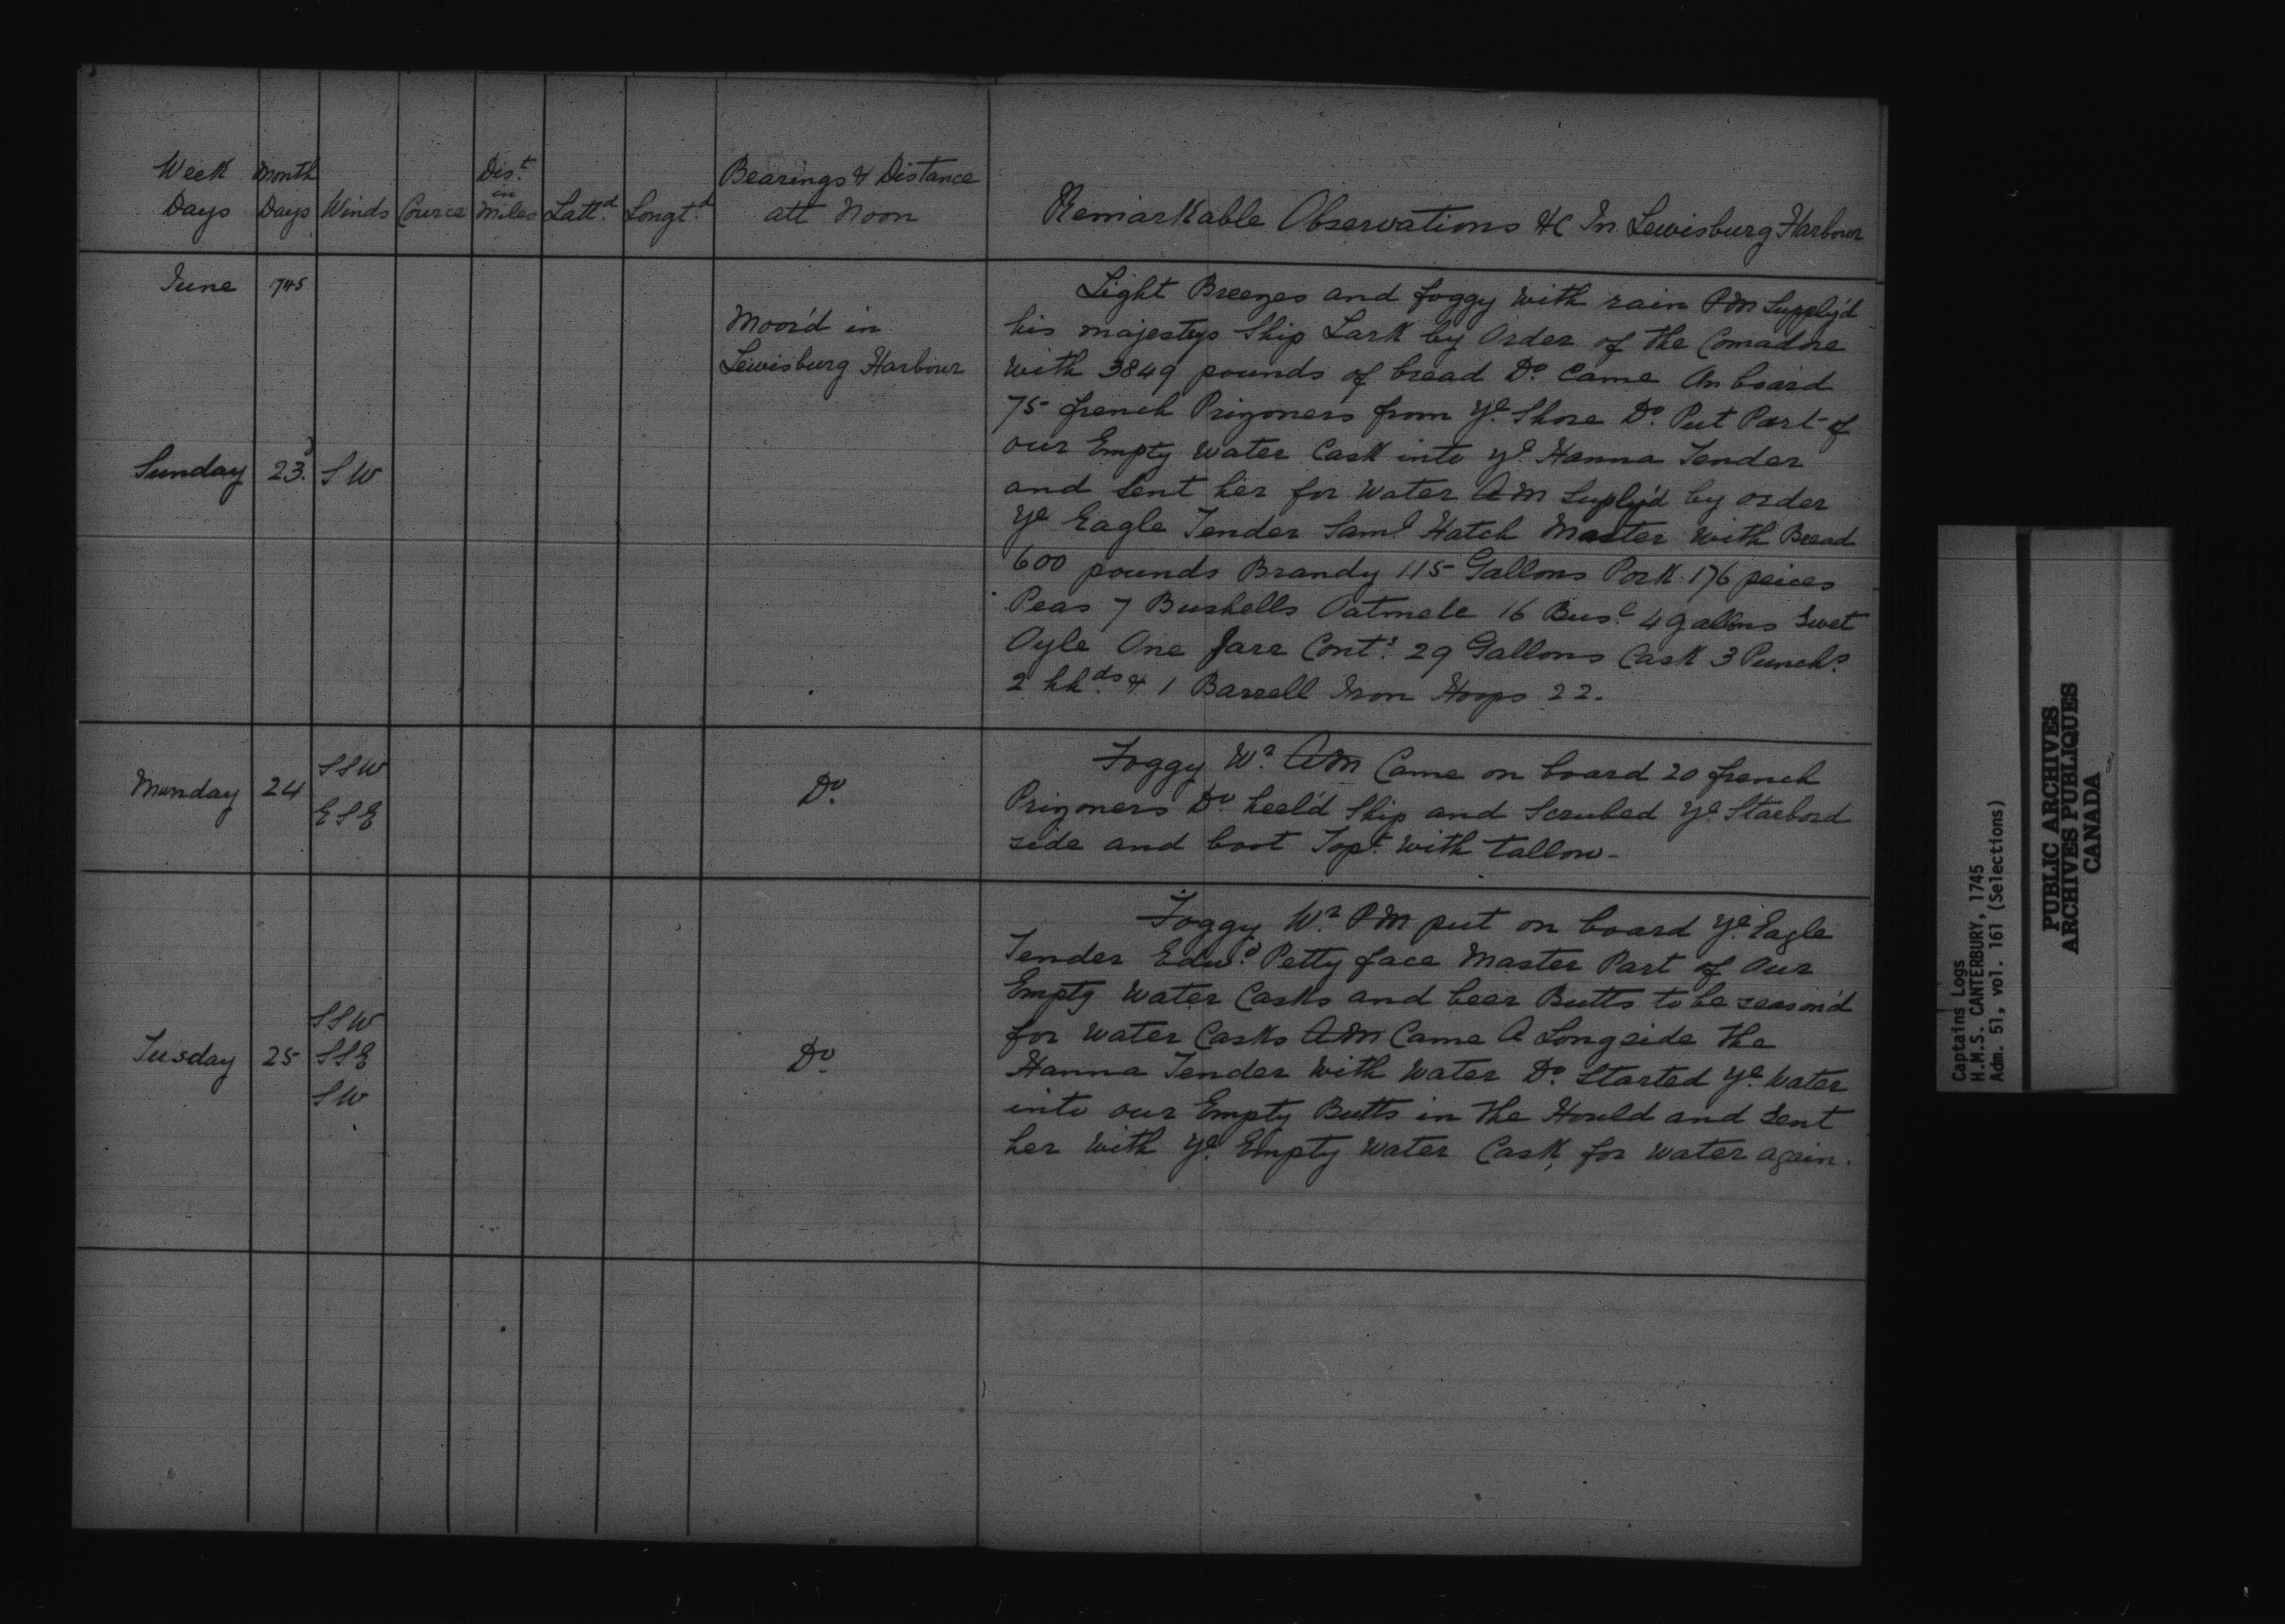 Week Days
Month Days
Winds
Cource
Dis.t in Miles
Latt.d
Longt.d
Bearings & Distance
att Noon
Remarkable Observations &c In Lewisburg Harbour
June 1745
Moor'd in
Lewisburg Harbour
Sunday 23.d SW
Light Breezes and foggy with rain PM Supply'd
his majestys Ship Lark by Order of the Comadore
with 3849 pounds of bread Do. Came On board
75 french Prizoners from ye. Shore Do. Put Part of
our Empty water Cask into ye. Hanna Tender
and Sent her for water AM Suply'd by order
ye Eagle Tender Saml. Hatch Master with Bread
600 pounds Brandy 115 Gallons Pork 176 peices
Peas 7 Bushells Oatmele 16 Busl. 4 gallons Swet
Oyle One Jarr Cont.s 29 Gallons Cask 3 Punchs.
2 hhds. & 1 Barrell Iron Hoops 22.
Munday 24
SSW
ESE
Do.
Foggy Wr. AM Came on board 20 french
Prizoners Do. heel'd Ship and Scrubed ye. Starbord
side and boot Topt. with tallow.
Tusday 25
SSW
SSE
SW
Do.
Foggy Wr. PM put on board ye. Eagle
Tender Edwd. Petty face Master Part of Our
Empty water Casks and beer Butts to be season'd
for water Casks AM Came A Longside the
Hanna Tender with water Do. Started ye. water
into our Empty Butts in the Hould and Sent
her with ye. Empty water Cask for water again.
Captains Logs
H.M.S. CANTERBURY, 1745
Adm. 51, vol. 161 (Selections)
PUBLIC ARCHIVES
ARCHIVES PUBLIQUES
CANADA